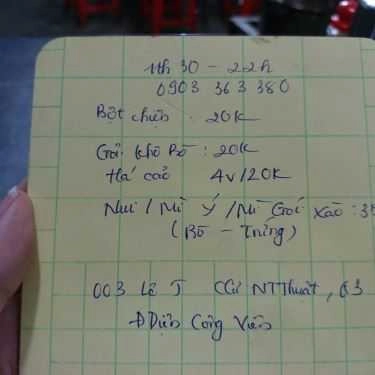 11h30 - 22h
0903 363 380
Bột chiên : 20K
Gỏi khô Bò : 20K
Há cảo 4v/20K
Nui / Mì Ý / Mì Gói xào : 3
(Bò - Trứng)
003 Lê CCư NTThuật, Q3
Đ Diện Công Viên